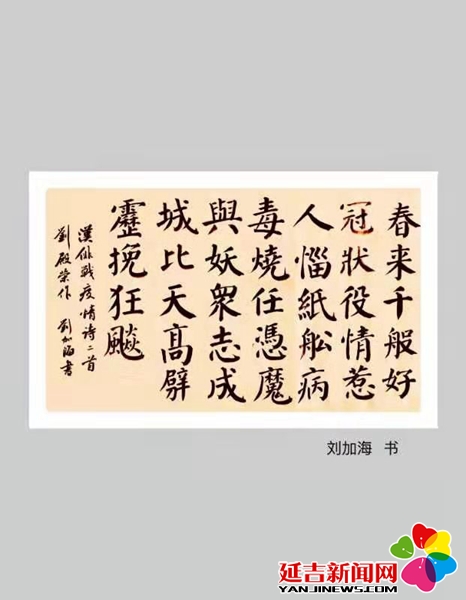 春来千般好
冠狀役情惹
人惱紙船病
毒燒任憑魔
與妖衆志成
城比天高劈
靂挽狂飈
漢俳戰疫情诗二首
劉殿榮作 劉加海書
刘加海 书
延吉新闻网
YANJINEWS.COM